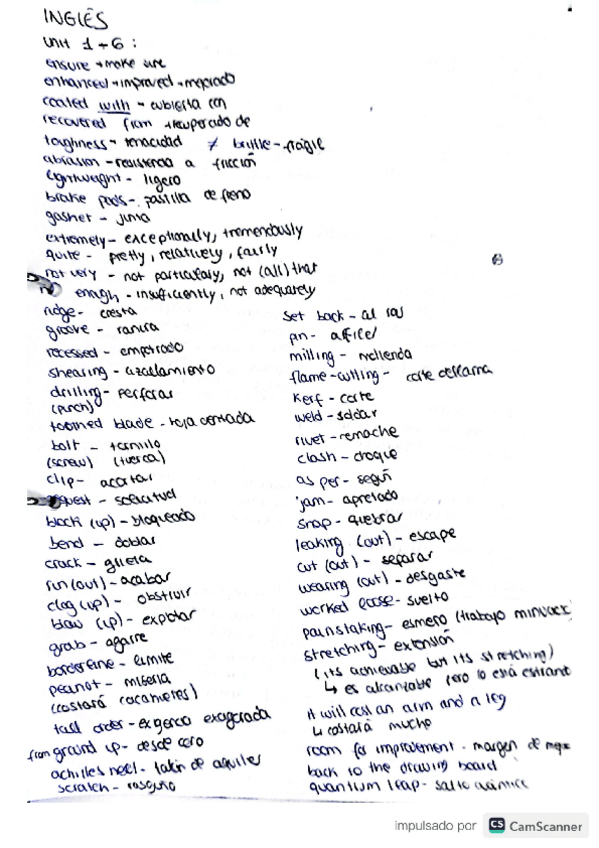 INGLÉS
Unit 1-6 :
ensure → make sure
enhanced → improved → mejorado
coated with - cubierta con
recovered from → recuperado de
toughness - tenacidad ≠ brittle - frágil
abrasion - resistencia a fricción
lightweight - ligero
brake pads - pastilla de freno
gasket - junta
extremely - exceptionally, tremendously
quite - pretty, relatively, fairly
not very - not particularly, not (all) that
enough - insufficiently, not adequately
ridge - cresta
groove - ranura
recessed - empotrado
shearing - cizallamiento
drilling - perforar
(punch)
toothed blade - hoja dentada
bolt - tornillo
(screw) (tuerca)
clip - acortar
request - solicitud
block (up) - bloqueado
bend - doblar
crack - grieta
run (out) - acabar
clog (up) - obstruir
blow (up) - explotar
grab - agarre
borderline - límite
peanut - miseria
(costará cacahuetes)
tall order - exigencia exagerada
from ground up - desde cero
achilles heel - talón de aquiles
scratch - rasguño
set back - al ras
pin - alfiler
milling - molienda
flame-cutting - corte de llama
Kerf - corte
weld - soldar
rivet - remache
clash - choque
as per - según
jam - apretado
snap - quebrar
leaking (out) - escape
cut (out) - separar
wearing (out) - desgaste
worked loose - suelto
painstaking - esmero (trabajo
stretching - extensión
(its achievable but its stretching)
↳ es alcanzable pero lo está estirando
it will cost an arm and a leg
↳ costará mucho
room for improvement - margen de
back to the drawing board
quantum leap - salto cuántico
impulsado por CS CamScanner